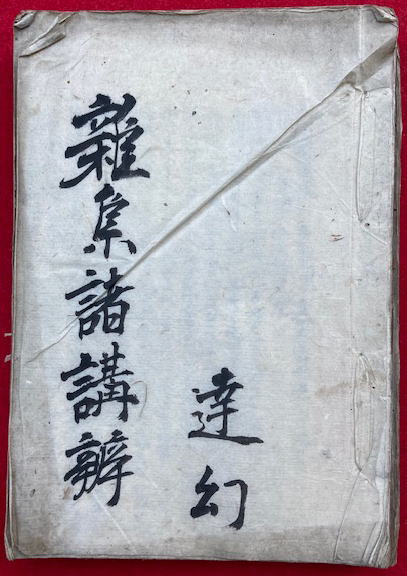 達幻
雜集諸講辨